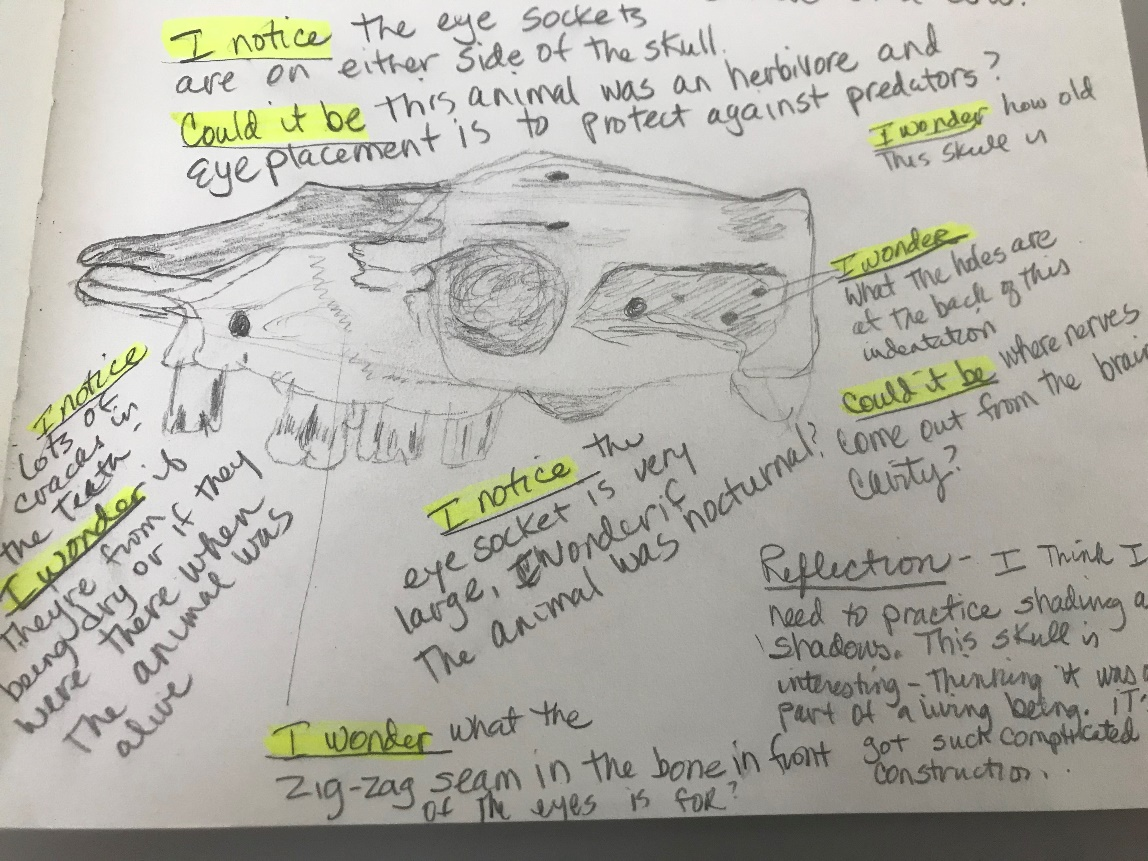 I notice the eye sockets
are on either side of the skull.
Could it be this animal was an herbivore and
Eye placement is to protect against predators?
I wonder how old
This skull is
I wonder
what the holes are
at the back of this
indentation
Could it be where nerves
come out from the brain
cavity?
I notice
lots of
cracks in
the teeth.
I wonder if
They're from
being dry or if they
were there when
The animal was
alive
I notice the
eye socket is very
large, I wonder if
The animal was nocturnal?
I wonder what the
Zig-zag seam in the bone in front
of the eyes is for?
Reflection - I Think I
need to practice shading
shadows. This skull is
interesting - Thinking it was
part of a living being. IT's
got such complicated
construction..